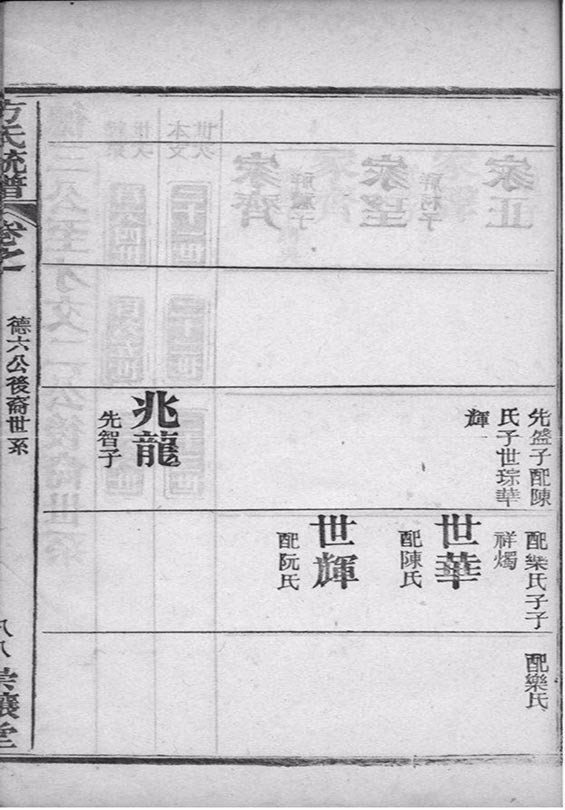 先盛子配陳
氏子世琮華
輝
兆龍
先智子
配樂氏子子
祥燭
世華
配陳氏
世輝
配阮氏
配樂氏
方氏統譜
卷之一
德六公後裔世系
八八
崇讓堂